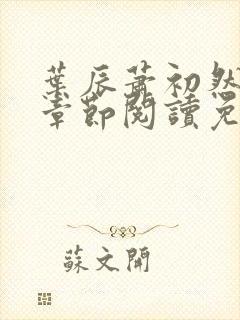 葉辰蕭初然
章節閱讀免
蘇文開